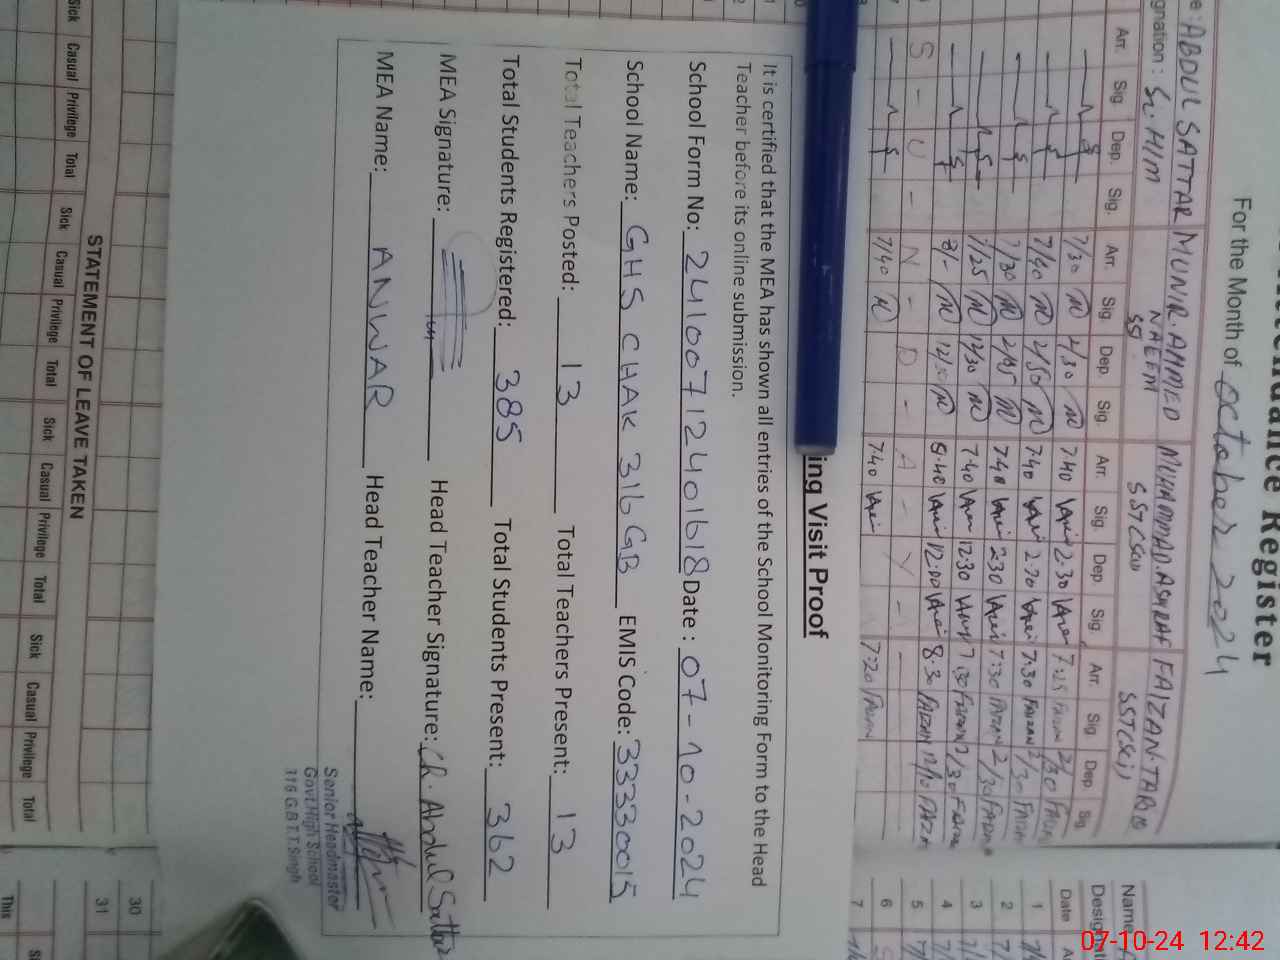 Attendance Register
For the Month of October 2024
ABDUL SATTAR MUNIR AHMED NAEEM MUHAMMAD ASHRAF FAIZAN TARIQ
gnation : Sr. H/M SST SSTCSci) SSTCSc))
Arr. Sig. Dep. Sig. Arr. Sig. Dep. Sig. Arr. Sig. Dep. Sig. Arr. Sig. Dep. Sig.
7/30 2/30 7.40 2.30 7:25 2/30
7/40 2/50 7.40 7.30 2/30
7/30 7.40 2.30 7:30 2/30
7/25 12/30 7.40 12.30 7.30
8/- 8.40 12.00 8.30 12/10
S - U - N - D - A - Y -
7/40 7.40 7:20
ing Visit Proof
It is certified that the MEA has shown all entries of the School Monitoring Form to the Head
Teacher before its online submission.
School Form No: 24100712401618 Date : 07-10-2024
School Name: GHS CHAK 316 GB EMIS Code: 33330015
Total Teachers Posted: 13 Total Teachers Present: 13
Total Students Registered: 385 Total Students Present: 362
MEA Signature: Head Teacher Signature: Ch. Abdul Sattar
MEA Name: ANWAR Head Teacher Name:
Senior Headmaster
Govt High School
316 G.B T.T. Singh
STATEMENT OF LEAVE TAKEN
Sick Casual Privilege Total Sick Casual Privilege Total Sick Casual Privilege Total Sick Casual Privilege Total
Name
Designat
Date
1
2
3
4
5
6
7
30
31
This
07-10-24 12:42